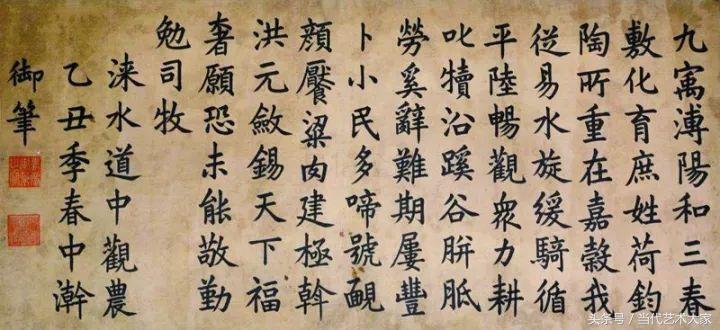 九寓溥陽和三春
敷化育庶姓荷鈞
陶所重在嘉穀我
從易水旋緩騎循
平陸暢觀衆力耕
叱犢沿蹊谷胼胝
勞奚辭難期屢豐
卜小民多啼號靦
顏饜粱肉建極斡
洪元斂錫天下福
奢願恐未能敬勤
勉司牧
淶水道中觀農
乙丑季春中澣
御筆
头条号／当代艺术大家